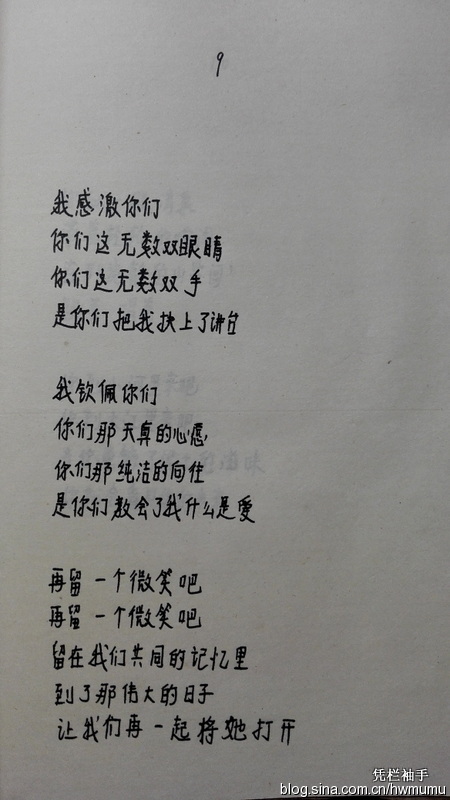 9
我感激你们
你们这无数双眼睛
你们这无数双手
是你们把我扶上了讲台
我钦佩你们
你们那天真的心愿
你们那纯洁的向往
是你们教会了我什么是爱
再留一个微笑吧
再留一个微笑吧
留在我们共同的记忆里
到了那伟大的日子
让我们再一起将她打开
凭栏袖手
blog.sina.com.cn/hwmumu